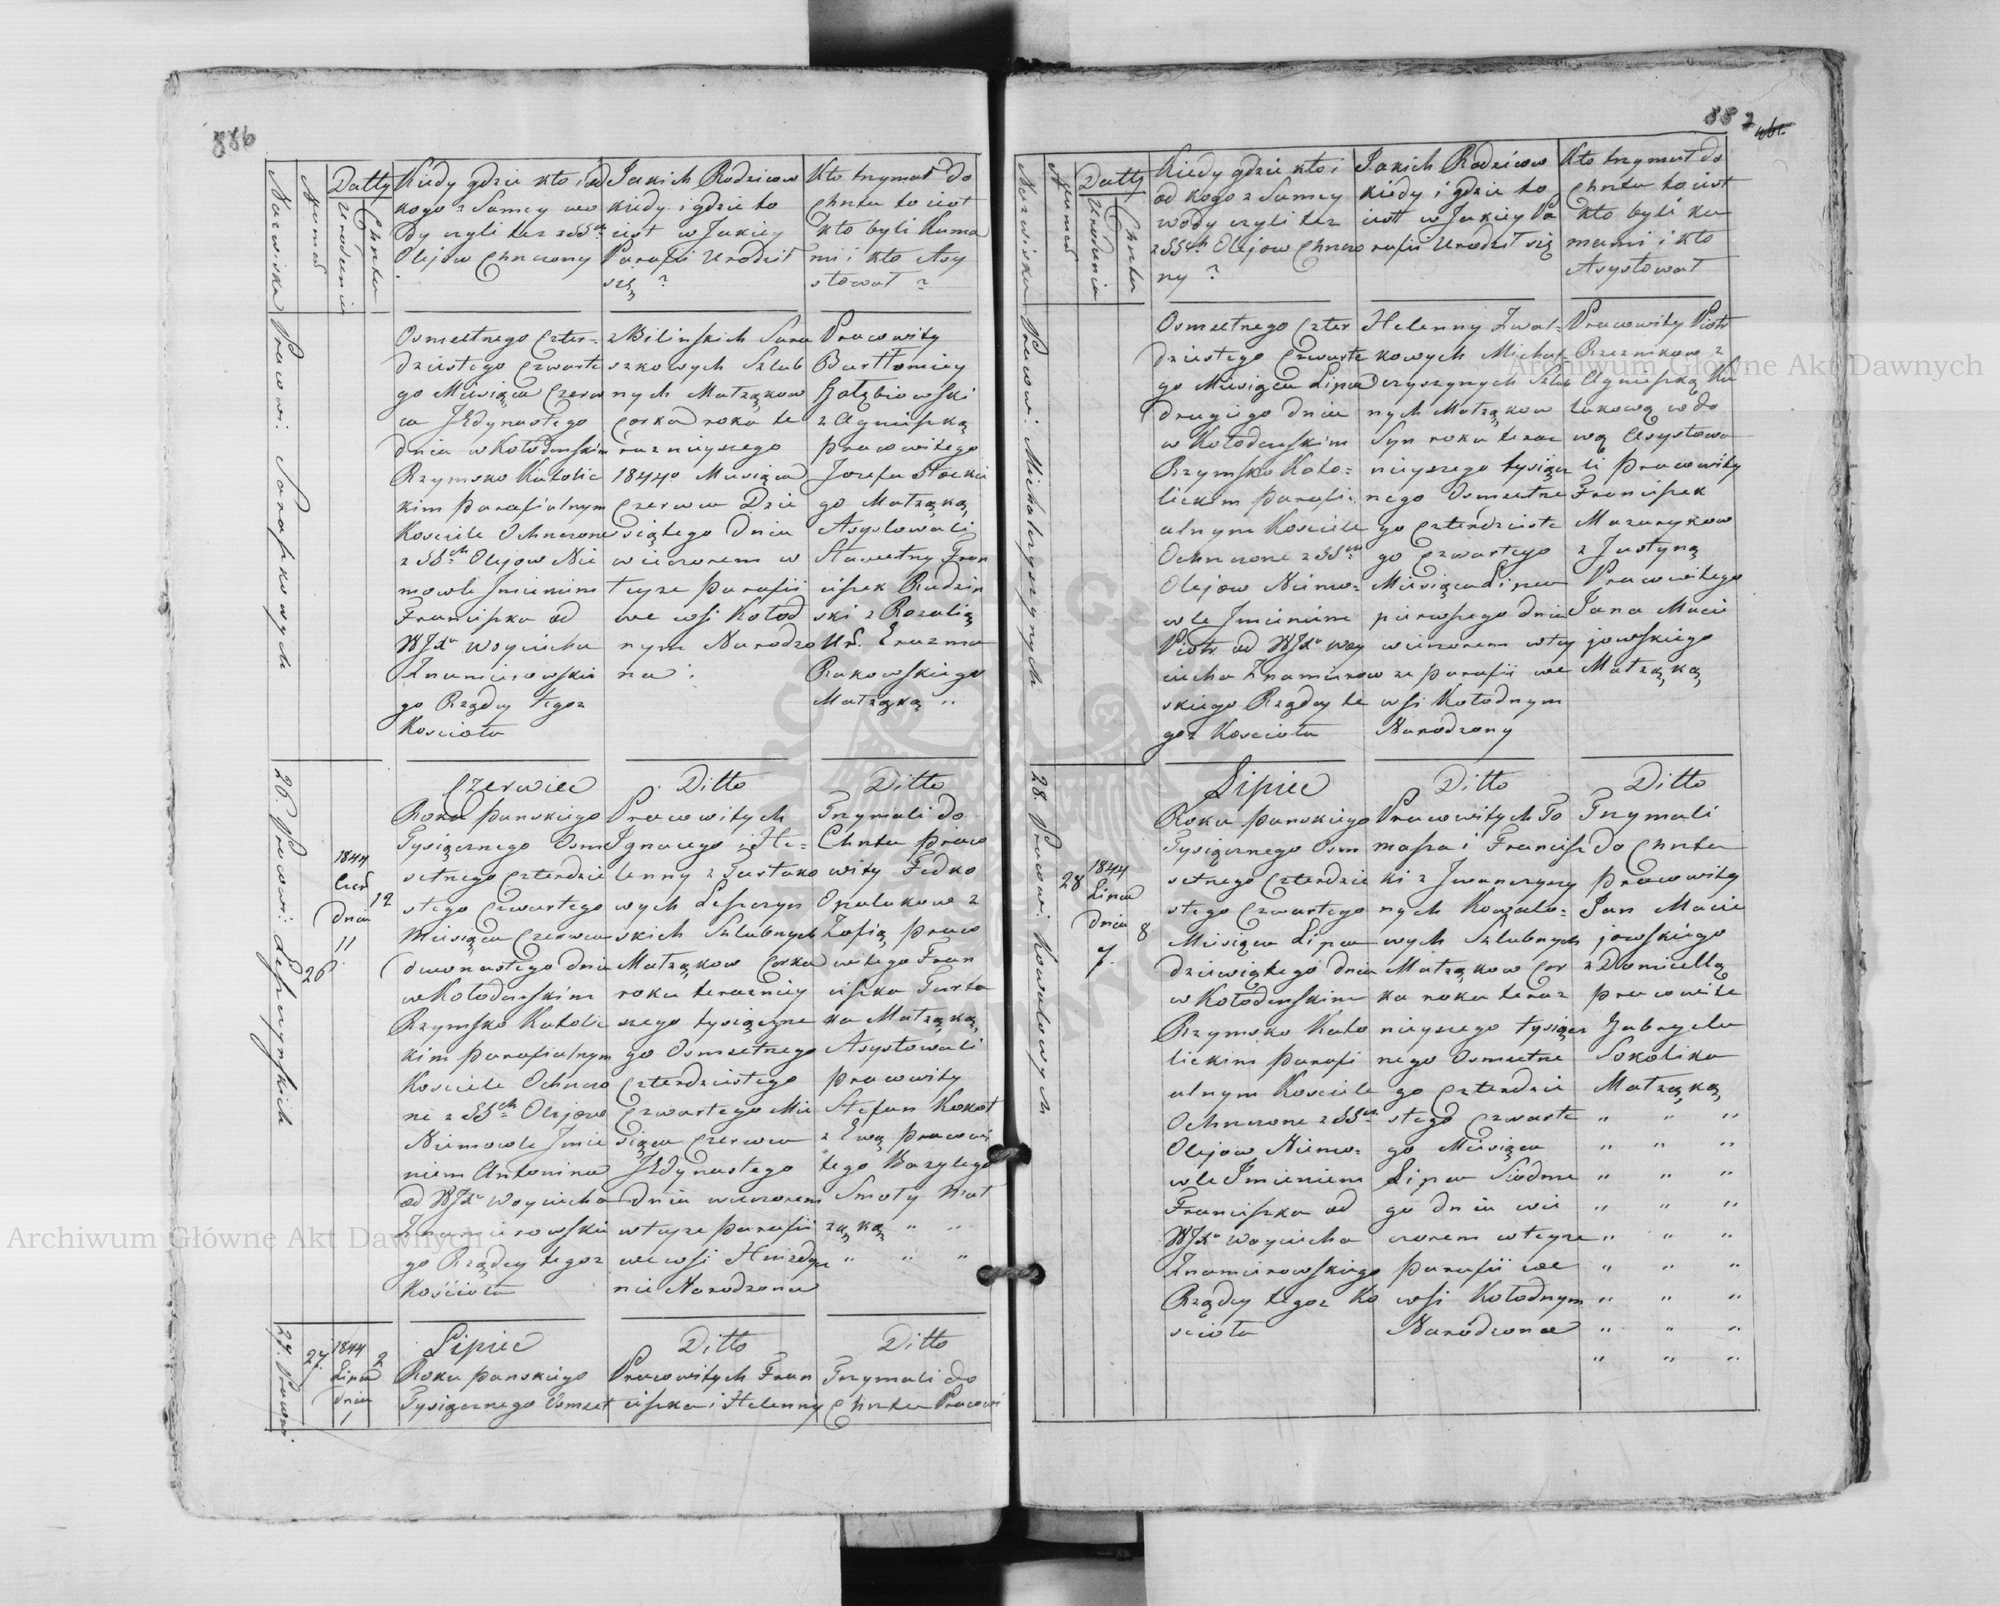 886
Nazwiska
Numer
Datty
Urodzenia
Chrztu
Kiedy gdzie kto i od
kogo z Samey wo
dy czyli też z SSch
Olejow Chrzczony
Jakich Rodzicow
kiedy i gdzie to
iest w Jakiey
Parafii Urodził
się ?
Kto trzymał do
Chrztu to iest
kto byli Kuma
mi i kto Asy
stował ?
Prawowi:
Osmsetnego Czter-
dziestego Czwarte
go Miesiąca Czerw
ca JEdynastego
dnia w Kołodenskim
Rzymsko Katolic
kim Parafialnym
Kościele Ochrzczone
z SSch Olejow Nie
mowle Jmieniem
Franciszka od
WJXa Woyciecha
Znamierowskie
go Rządcy tegoż
Kościoła
z Bilinskich Sara
szkowych Szlub
nych Małżąkow
Corka roku te
raznieyszego
1844o Miesiąca
Czerwca Dzie
siątego dnia
wieczorem w
teyże Parafii
we wsi Kołod
nym Narodzo
na .
Pracowity
Bartłomiey
Gołębiowski
z Agnieszką
pracowitego
Jozefa
go Małżąką
Asystowali
Sławetny Fran
ciszek Rudzin
ski z Rozalią
Ur. Erazma
Rakowskiego
Małżąką "
26. Prawowi: Leszczynskich
26
1844
Czer
Dnia
11
12
Czerwiec
Roku Panskiego
Tysiącznego Osm
setnego Czterdzie
stego Czwartego
Miesiąca Czerwca
dwonastego dnia
w Kołodenskim
Rzymsko Katolic
kim Parafialnym
Kościele Ochrzczo
ne z SSch Olejow
Niemowle Jmie
niem Antonina
od WJXa Woyciecha
Znamierowskie
go Rządcy tegoż
Kościoła
Ditto
Pracowitych
Jgnacego i He-
lenny z Tustako
wych Leszczyn
skich Szlubnych
Małżąkow Corka
roku terazniey
szego tysiączne
go Osmsetnego
Czterdziestego
Czwartego Mie
siąca Czerwca
JEdynastego
dnia wieczorem
w teyże Parafii
we wsi Hniezdy
nie Narodzona
Ditto
Trzymali do
Chrztu praco
wity Fedko
Opalukow z
Zofią praco
witego Fran
ciszka
ka Małżąką,
Asystowali
pracowity
Stefan Kokot
z Ewą pracowi
tego Bazylego
Smoły Mał
żąką " "
" " "
27. Prawo:
27.
1844
Lipca
Dnia
1
2
Lipiec
Roku Panskiego
Tysiącznego Osmset
Ditto
Pracowitych Fran
ciszka i Helenny
Ditto
Trzymali do
Chrztu Pracowi
887
Nazwiska
Numer
Datty
Urodzenia
Chrztu
Kiedy gdzie kto i
od kogo z Samey
wody czyli też
z SSch Olejow Chrzczo
ny ?
Jakich Rodzicow
kiedy i gdzie to
iest w Jakiey Pa
rafii Urodził się
Kto trzymał do
Chrztu to iest
kto byli Ku
mami i kto
Asystował
Prawowi:
Osmsetnego Czter
dziestego Czwarte
go Miesiąca Lipca
drugiego dnia
w Kołodenskim
Rzymsko Kato-
lickim Parafi-
alnym Kościele
Ochrzczone z SSch
Olejow Niemo-
wle Jmieniem
Piotr od WJXa Woy
ciecha Znamierow
skiego Rządcy te
goż Kościoła
Helenny
kowych
czyszynych Szlub
nych Małżąkow
Syn roku teraz
nieyszego tysiącz
nego Osmsetne
go Czterdzieste
go Czwartego
Miesiąca Lipca
pierwszego dnia
wieczorem w tey
że Parafii we
wsi Kołodnym
Narodzony
Pracowity Piotr
z Agnieszką
wdo
wą Asystowa
li Pracowity
Franciszek
Mazurykow
z Justyną
Pracowitego
Jana Macie
jowskiego
Małżąką,
28. Prawowi: Kowalowych
28
1844
Lipca
Dnia
7.
8
Lipiec
Roku Panskiego
Tysiącznego Osm
setnego Czterdzie
stego Czwartego
Miesiąca Lipca
dziewiątego dnia
w Kołodenskim
Rzymsko Kato
lickim Parafi
alnym Kościele
Ochrzczone z SSch
Olejow Niemo-
wle Jmieniem
Franciszka od
WJXa Woyciecha
Znamierowskiego
Rządcy tegoż Ko
ścioła
Ditto
Pracowitych To
masza i Francisz
ki z Jwanczyszy
nych Kowalo-
wych Szlubnych
Małżąkow Cor
ka roku teraz
nieyszego tysiącz
nego Osmsetne
go Czterdzie
stego Czwarte
go Miesiąca
Lipca Siodme
go dnia wie
czorem w teyże
Parafii we
wsi Kołodnym
Narodzona
Ditto
Trzymali
do Chrztu
Pracowity
Jan Macie
jowskiego
z Domicellą
pracowite
Gabryela
Sokolika
Małżąką,
" " "
" " "
" " "
" " "
" " "
" " "
" " "
" " "
" " "
Archiwum Główne Akt Dawnych
Archiwum Główne Akt Dawnych